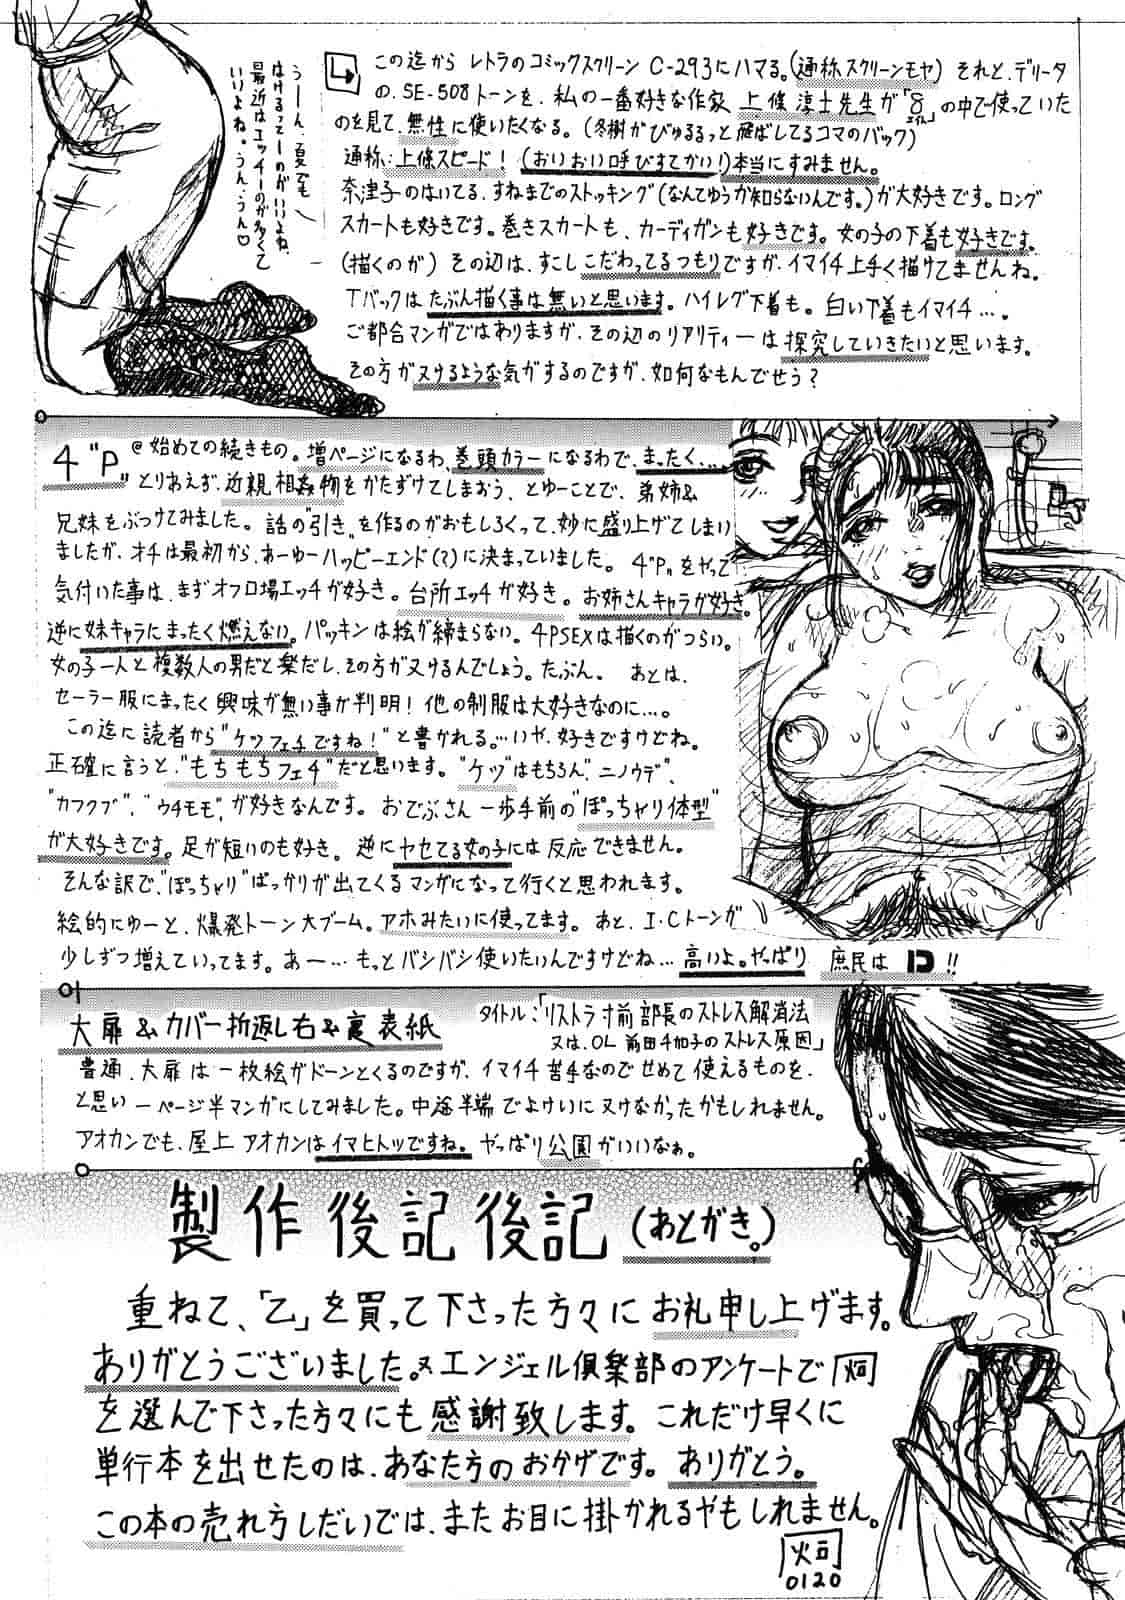 この迄から レトラのコミックスクリーン C-293にハマる。(通称、スクリーンモヤ) それと、デリータ
の、SE-508トーンを、私の一番好きな作家 上條淳士先生が「8」の中で使っていた
エイト
のを見て、無性に使いたくなる。(冬樹がびゅるるっと飛ばしてるコマのバック)
通称:上條スピード! (おいおい呼びすてかい!) 本当にすみません。
奈津子のはいてる、すねまでのストッキング(なんてゆうか知らないんです。)が大好きです。ロング
スカートも好きです。巻きスカートも、カーディガンも好きです。女の子の下着も好きです。
(描くのが) その辺は、すこしこだわってるつもりですが、イマイチ上手く描けてませんね。
Tバックはたぶん描く事は無いと思います。ハイレグ下着も。白い下着もイマイチ…。
ご都合マンガではありますが、その辺のリアリティーは探究していきたいと思います。
その方がヌけるような気がするのですが、如何なもんでせう?
うーん、夏でも
はけるってーのがいいよね、
最近はエッチーのが多くて
いいよね。うん、うん♡
4"P"
@始めての続きもの。増ページになるわ、巻頭カラーになるわで、まったく、…
とりあえず、近親相姦物をかたずけてしまおう、とゆーことで、弟姉&
兄妹をぶつけてみました。話の"引き"を作るのがおもしろくって、妙に盛り上げてしまい
ましたが、オチは最初から、あーゆーハッピーエンド(?)に決まっていました。4"P"をやって
気付いた事は、まずオフロ場エッチが好き。台所エッチが好き。お姉さんキャラが好き。
逆に妹キャラにまったく燃えない。パッキンは絵が締まらない。4PSEXは描くのがつらい。
女の子一人と複数人の男だと楽だし、その方がヌけるんでしょう。たぶん。 あとは、
セーラー服にまったく興味が無い事が判明! 他の制服は大好きなのに…。
この迄に読者から"ケツフェチですね!"と書かれる。…いや、好きですけどね。
正確に言うと、"もちもちフェチ"だと思います。"ケツ"はもちろん、ニノウデ"、
"カフクブ"、"ウチモモ"、が好きなんです。おでぶさん一歩手前の"ぽっちゃり体型"
が大好きです。足が短いのも好き。逆にヤセてる女の子には反応できません。
そんな訳で、"ぽっちゃり"ばっかりが出てくるマンガになって行くと思われます。
絵的にゆーと、爆発トーン大ブーム。アホみたいに使ってます。あと、I.Cトーンが
少しずつ増えていってます。あー…もっとバシバシ使いたいんですけどね…高いよ。やっぱり 庶民は !!
大扉&カバー折返し右&裏表紙
タイトル:「リストラ寸前部長のストレス解消法
又は、OL 前田千加子のストレス原因」
普通、大扉は一枚絵がドーンとくるのですが、イマイチ苦手なのでせめて使えるものを、
と思い一ページ半マンガにしてみました。中途半端でよけいにヌけなかったかもしれません。
アオカンでも、屋上アオカンはイマヒトツですね。やっぱり公園がいいなぁ。
製作後記後記(あとがき。)
重ねて、「乙」を買って下さった方々にお礼申し上げます。
ありがとうございました。ヌエンジェル倶楽部のアンケートで
を選んで下さった方々にも感謝致します。これだけ早くに
単行本を出せたのは、あなた方のおかげです。ありがとう。
この本の売れ方しだいでは、またお目に掛かれるやもしれません。
0120